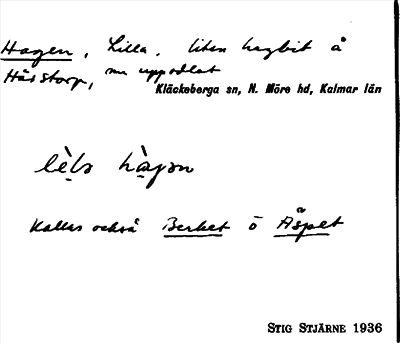 Hagen, Lilla. liten hagbit å
Hässtorp, nu uppodlat
Kläckeberga sn, N. Möre hd, Kalmar län
Kallas också Berket o Äspet
STIG STJÄRNE 1936